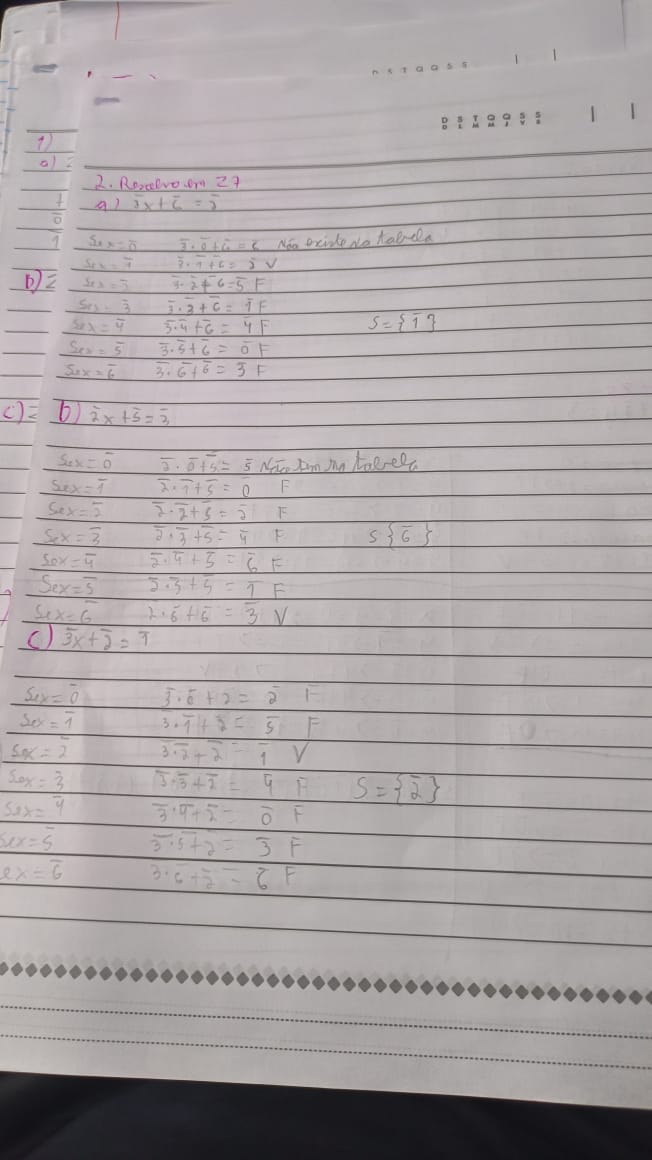 D S T Q Q S S
D S T Q Q S S
D L M M J V S
1)
a)
2. Resolva em Z7
a) 3̄x + 6̄ = 2̄
Se x = 0̄ 3̄·0̄+6̄ = 6 Não existe na tabela
Se x = 1̄ 3̄·1̄+6̄ = 2̄ V
b) Se x = 2̄ 3̄·2̄+6 = 5̄ F
Se x = 3̄ 3̄·3̄+6̄ = 1̄ F
Se x = 4̄ 3̄·4̄+6̄ = 4̄ F S = {1̄}
Se x = 5̄ 3̄·5̄+6̄ = 0̄ F
Se x = 6̄ 3̄·6̄+6̄ = 3̄ F
c) b) 2̄x + 5̄ = 3̄
Se x = 0̄ 2̄·0̄+5̄ = 5̄ Não tem na tabela
Se x = 1̄ 2̄·1̄+5̄ = 0̄ F
Se x = 2̄ 2̄·2̄+5̄ = 2̄ F
Se x = 3̄ 2̄·3̄+5̄ = 4̄ F S {6̄}
Se x = 4̄ 2̄·4̄+5̄ = 6̄ F
Se x = 5̄ 2̄·5̄+5̄ = 1̄ F
Se x = 6̄ 2̄·6+6̄ = 3̄ V
c) 3̄x + 2̄ = 1̄
Se x = 0̄ 3̄·0̄+2 = 2̄ F
Se x = 1̄ 3̄·1̄+2̄ = 5̄ F
Se x = 2̄ 3̄·2̄+2̄ = 1̄ V
Se x = 3̄ 3̄·3̄+2̄ = 4̄ F S = {2̄}
Se x = 4̄ 3̄·4̄+2̄ = 0̄ F
Se x = 5̄ 3̄·5̄+2̄ = 3̄ F
ex = 6̄ 3·6̄+2̄ = 6̄ F